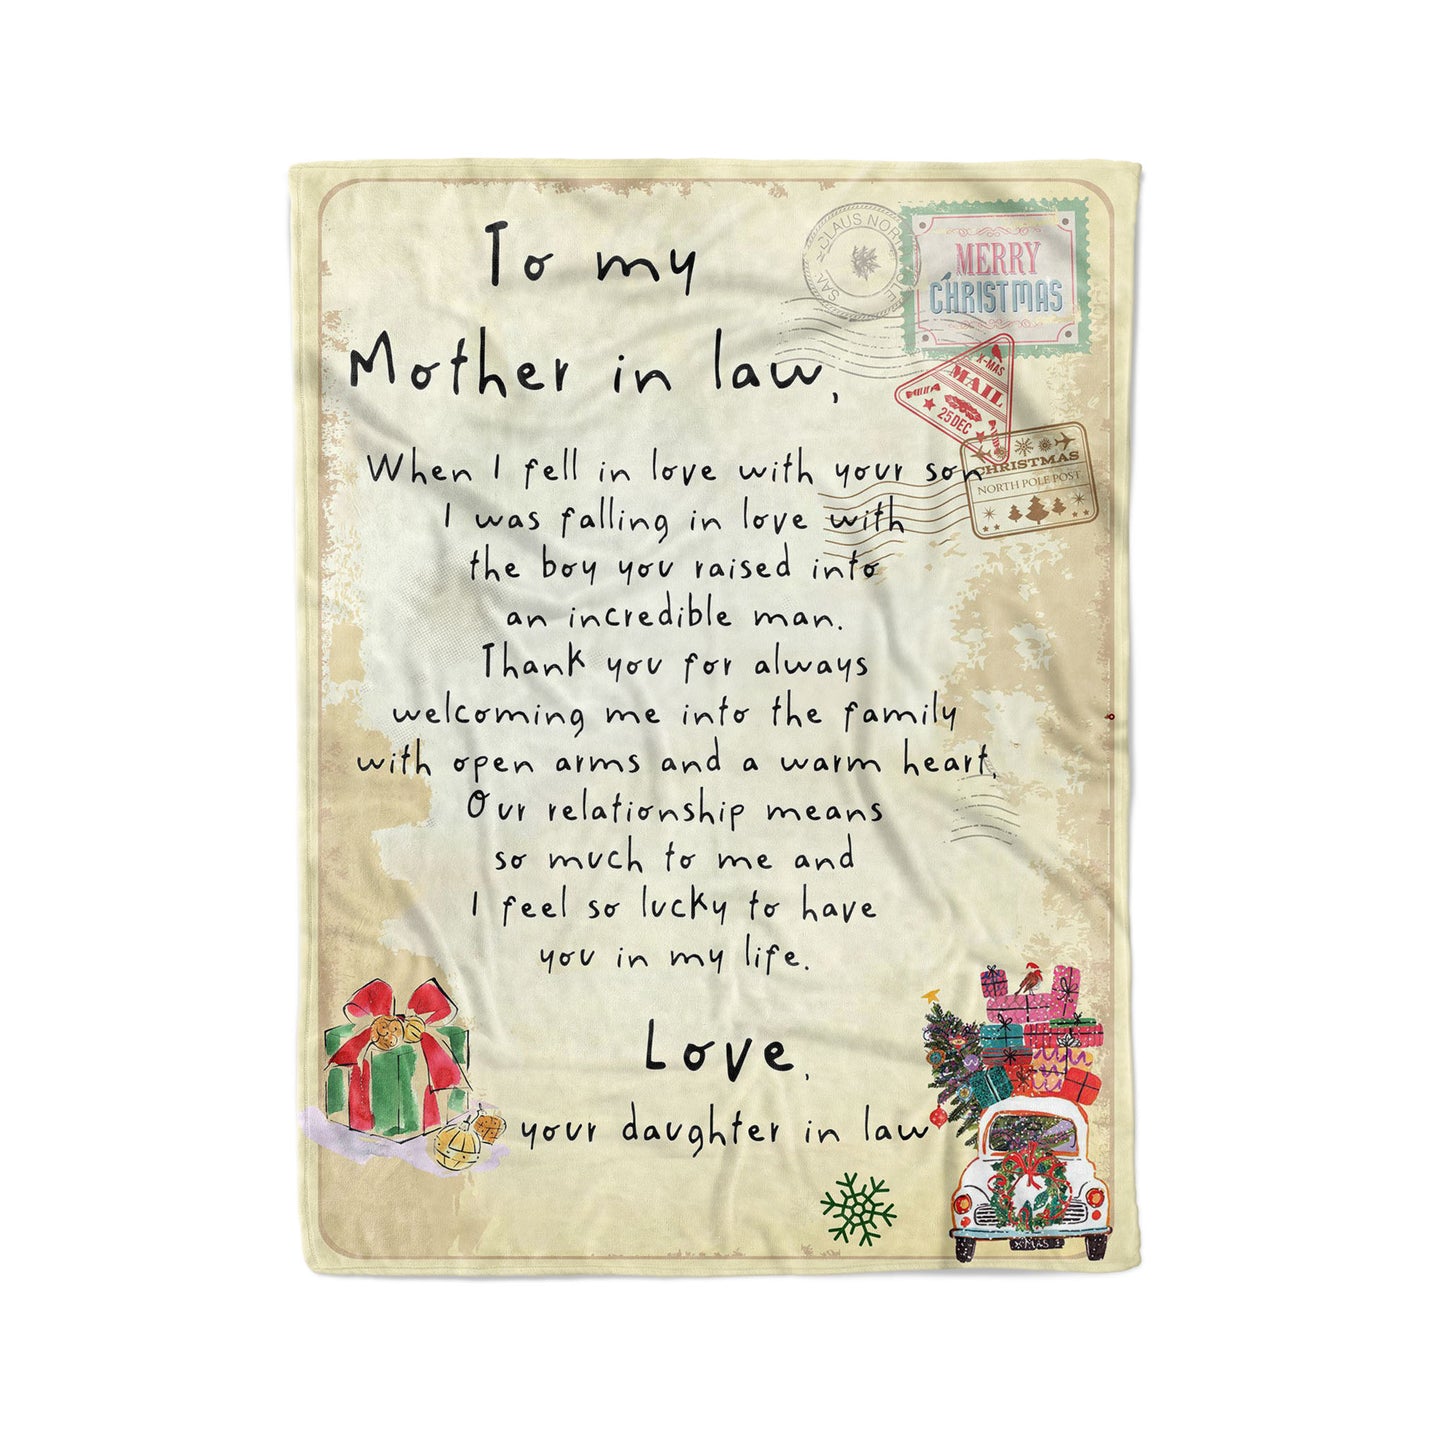 To my
Mother in law,
When I fell in love with your son
I was falling in love with
the boy you raised into
an incredible man.
Thank you for always
welcoming me into the family
with open arms and a warm heart.
Our relationship means
so much to me and
I feel so lucky to have
you in my life.
Love,
your daughter in law
MERRY
CHRISTMAS
X-MAS
MAIL
25 DEC
CHRISTMAS
NORTH POLE POST
CLAUS NOR
XMAS